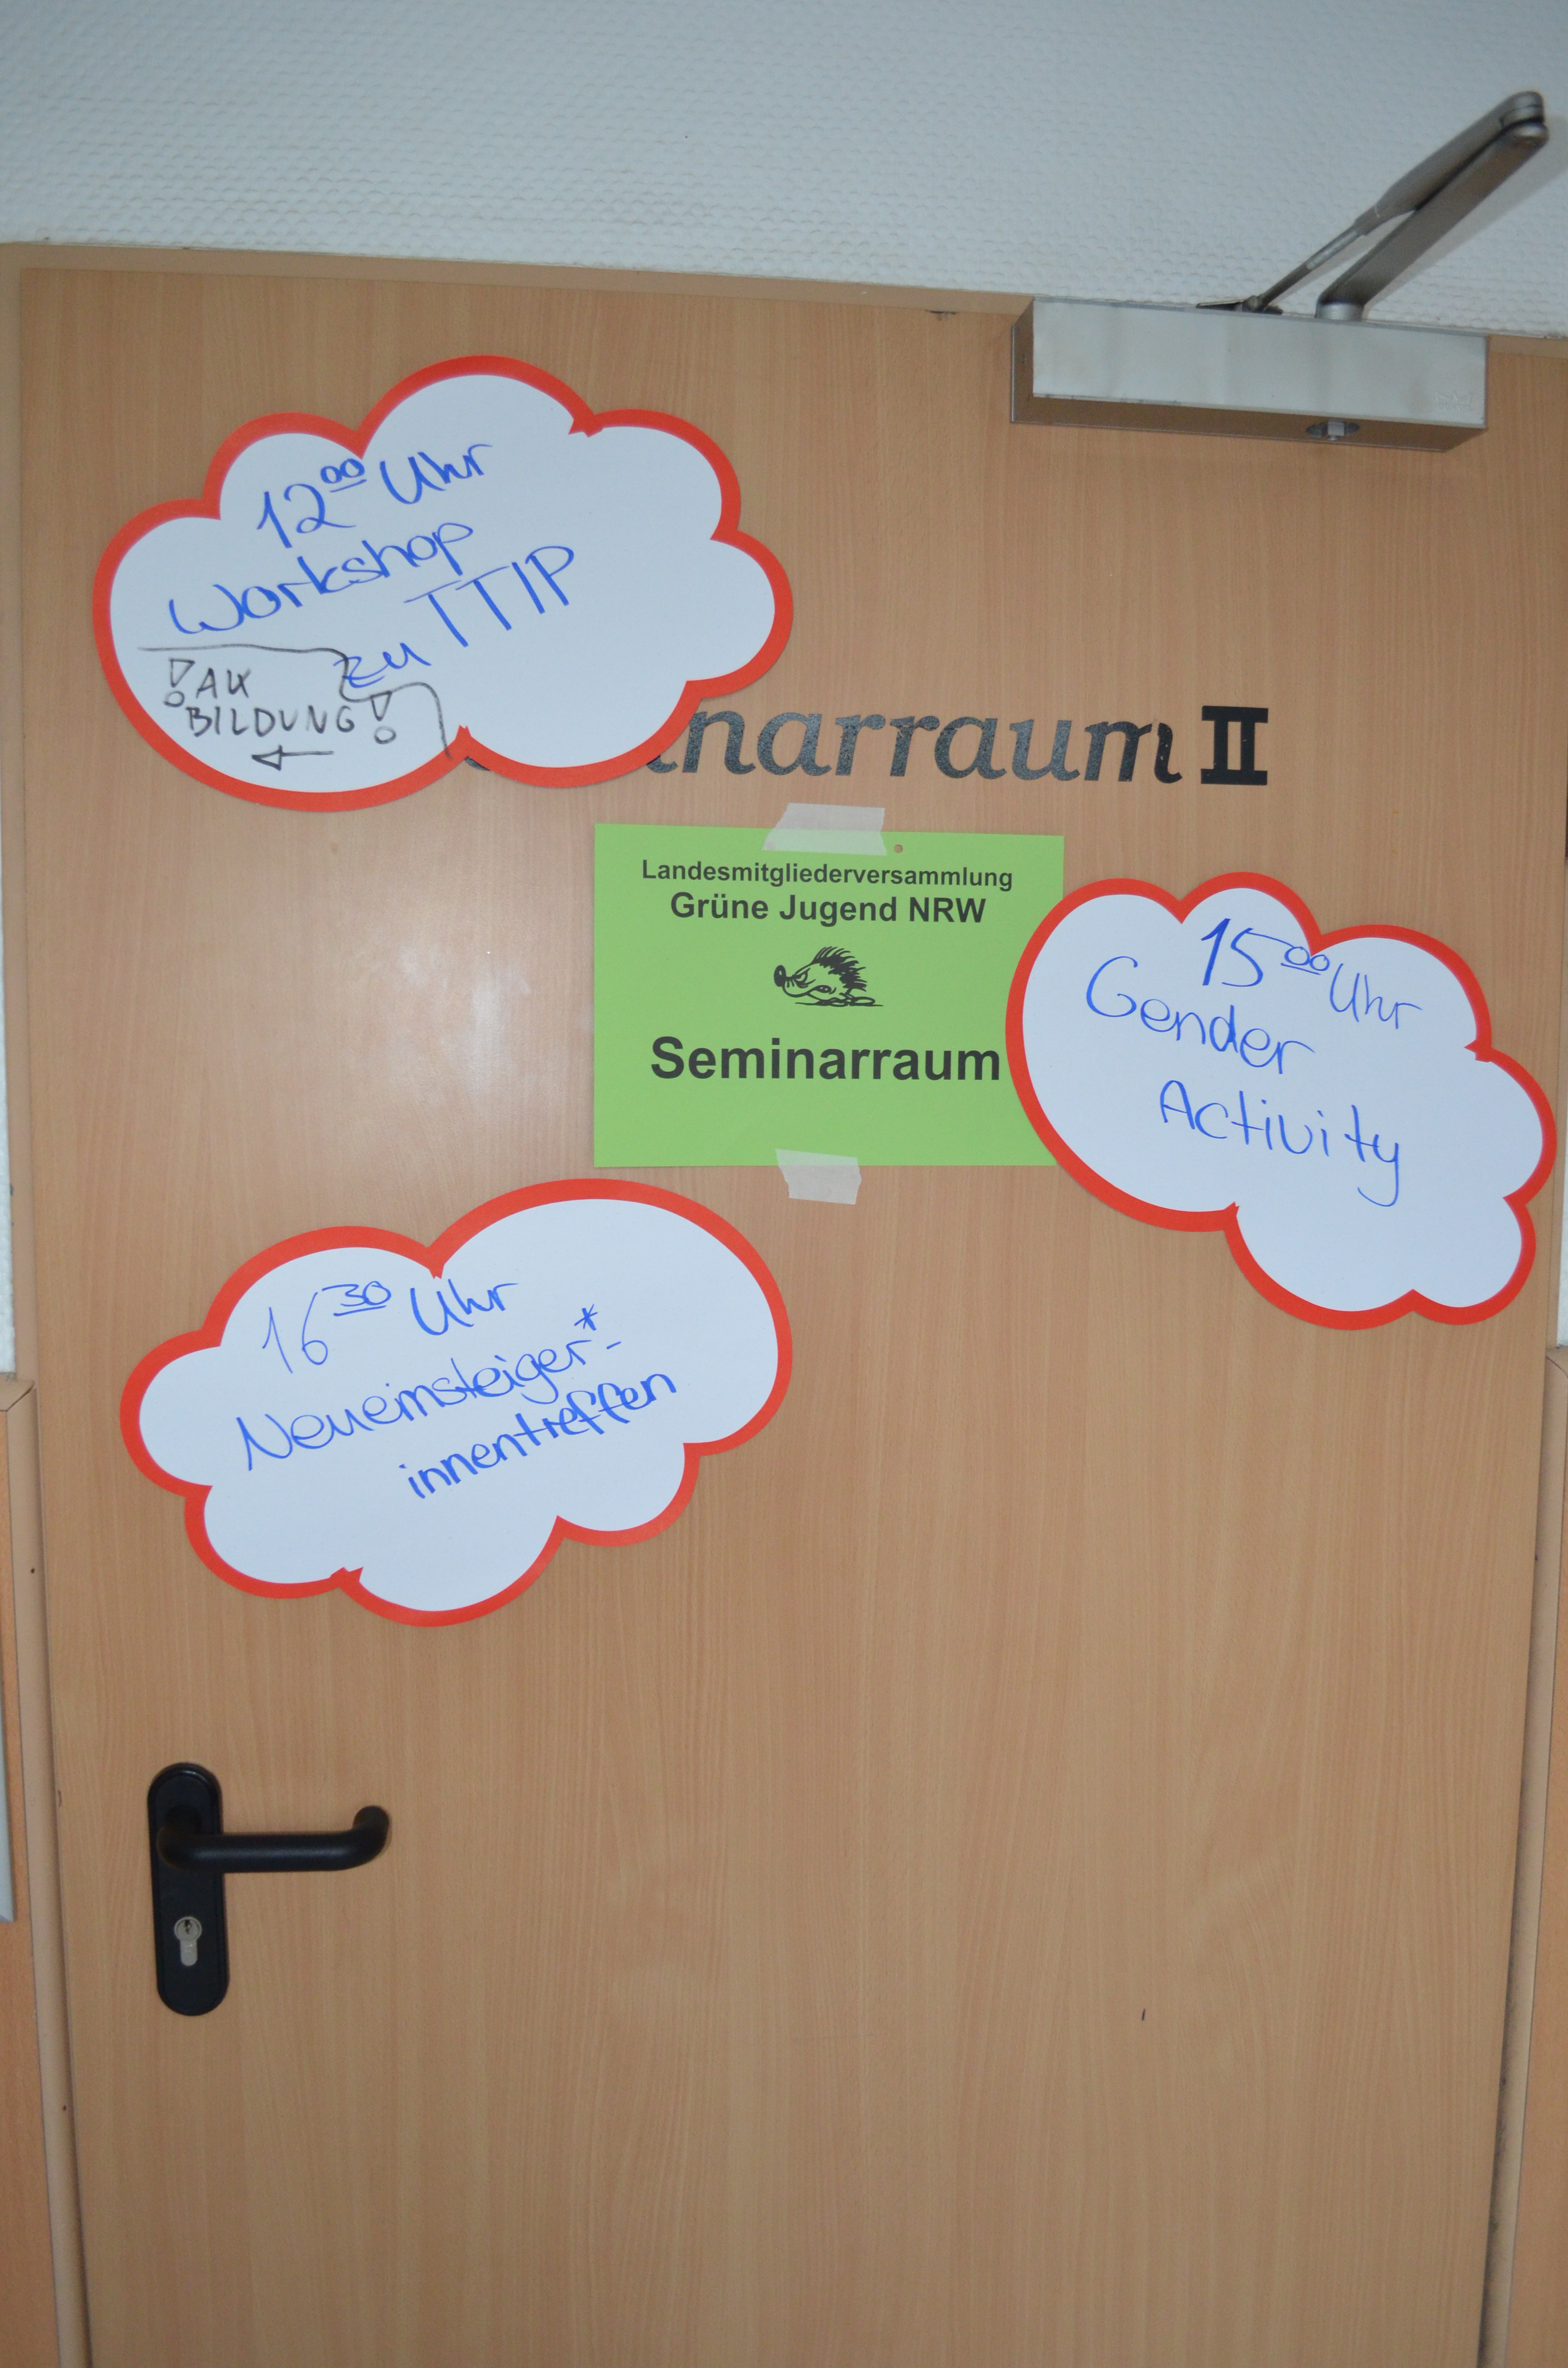 12⁰⁰ Uhr
Workshop
zu TTIP
! AK
BILDUNG !
←
narraum II
Landesmitgliederversammlung
Grüne Jugend NRW
Seminarraum
15⁰⁰ Uhr
Gender
Activity
16³⁰ Uhr
Neueinsteiger*-
innentreffen